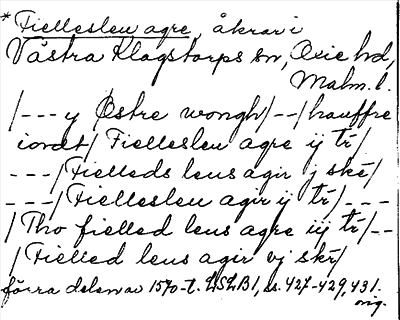 * Fiellesleu agre, åkrar i
Västra Klagstorps sn, Oxie hd,
Malm. l.
/--- y Østre wongh/--/hauffre
iordt/ Fiellesleu agre ij tr/
---/Fielleds leus agir j ske/
---/Fiellesleu agir ij tr/---
/Tho fielled leus agre iij tr/--
/Fielled leus agir vj skr/
förra delen av 1570-t. LSLB1, ss. 427-429, 431.
orig.